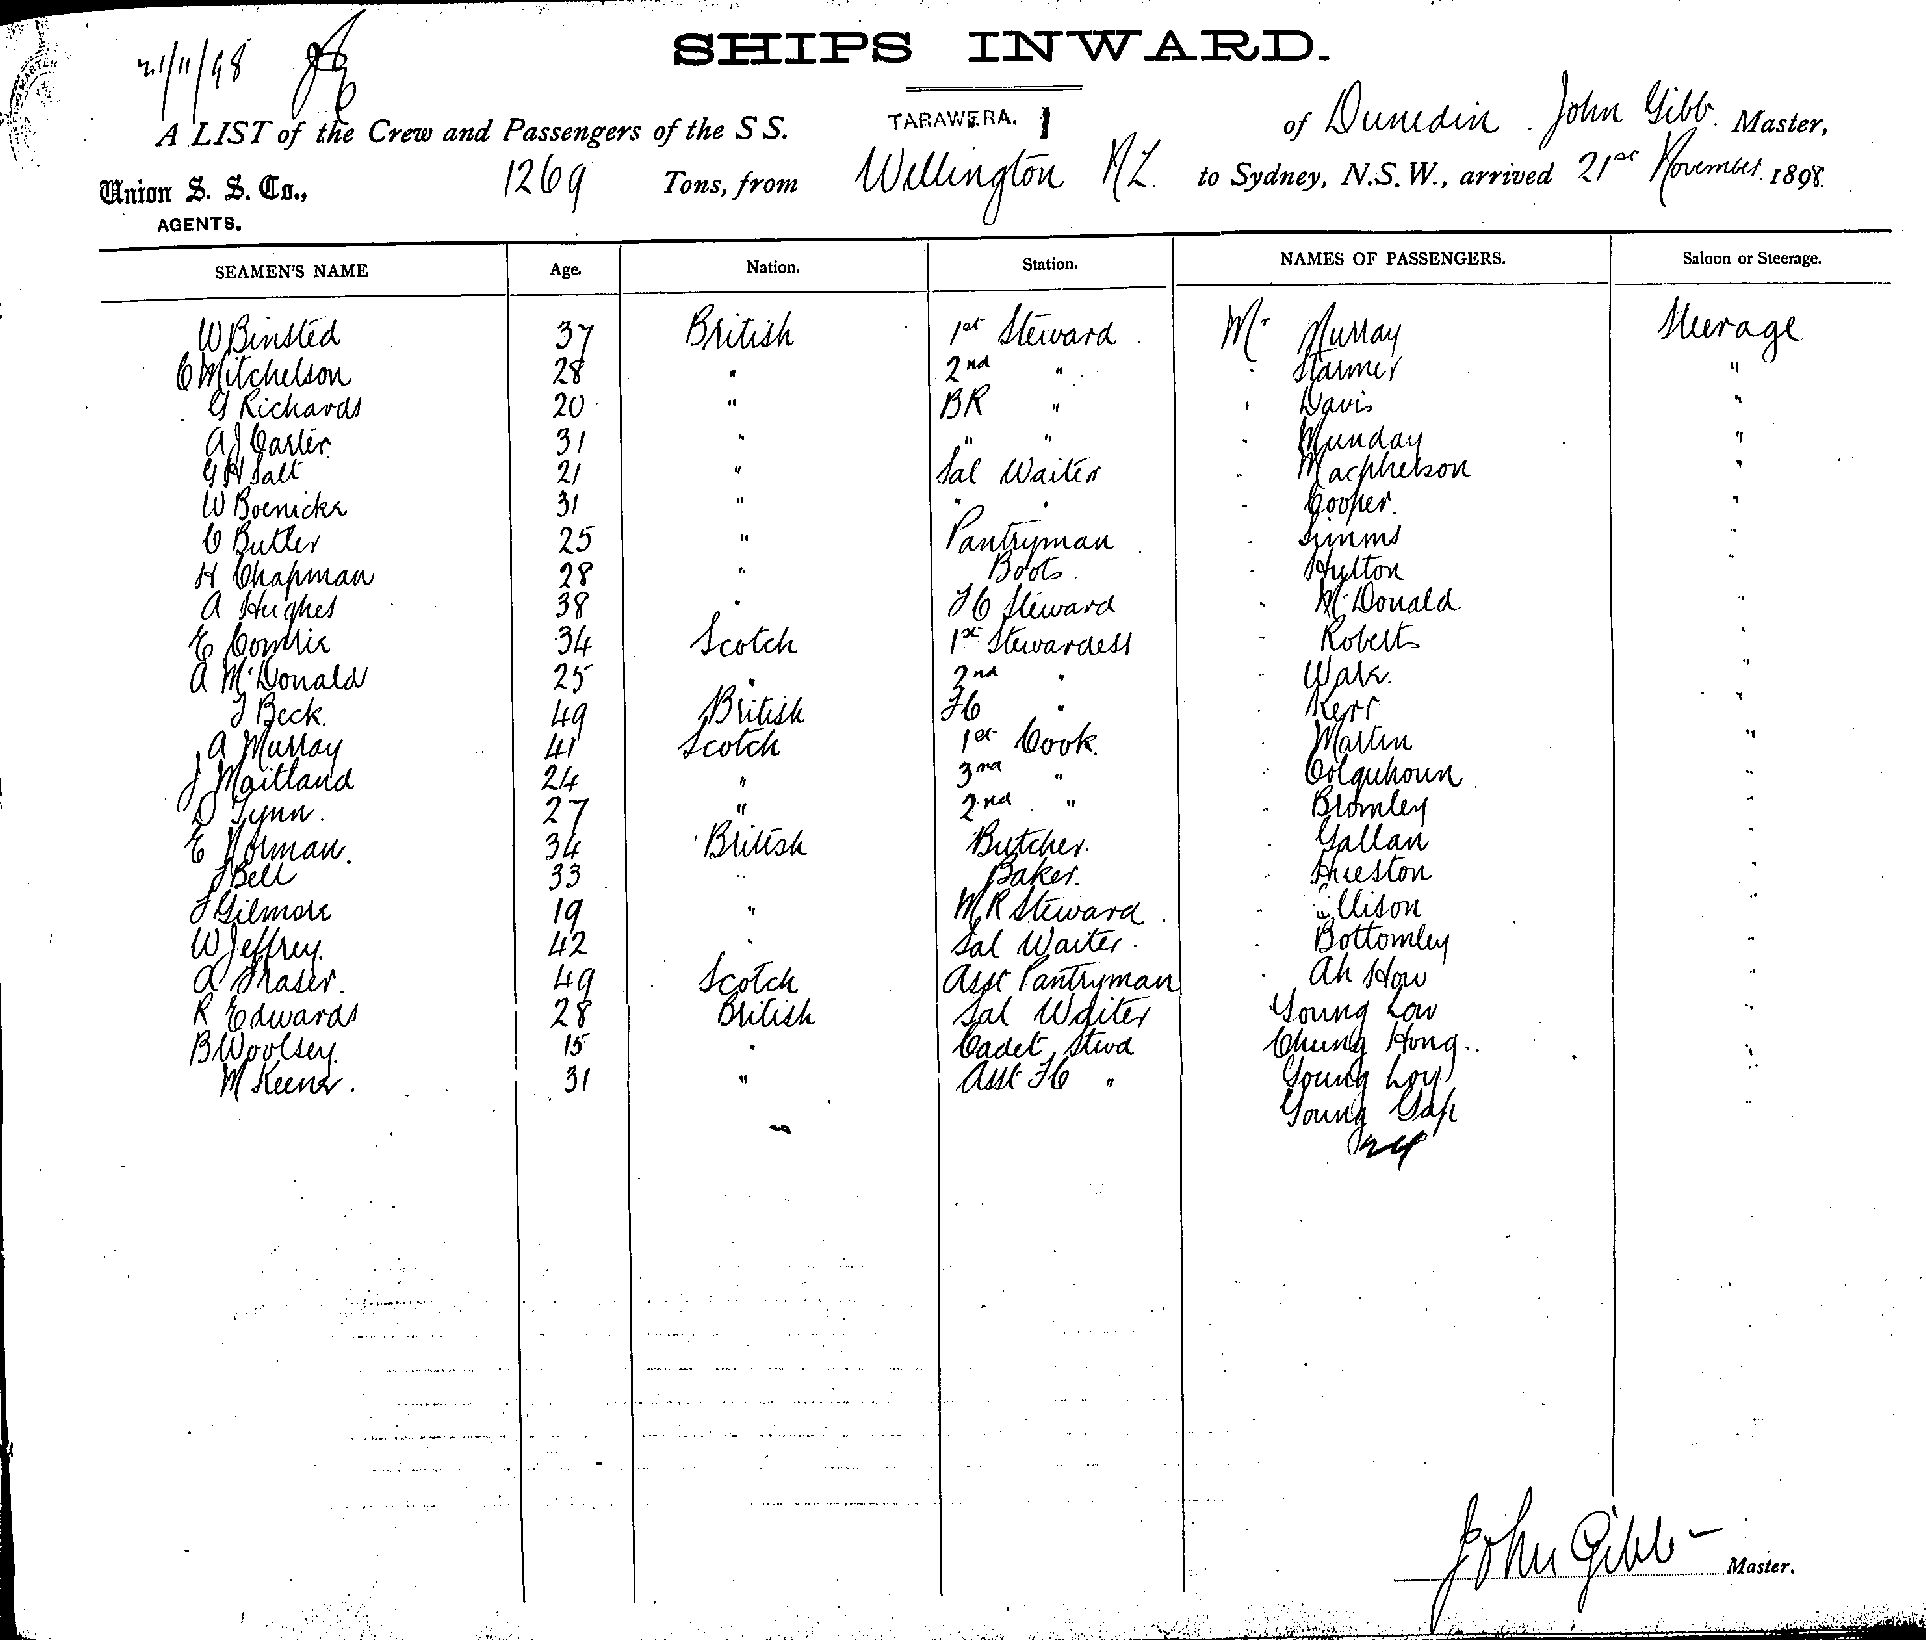 21/11/98
SHIPS INWARD.
A LIST of the Crew and Passengers of the SS. TARAWERA. of Dunedin John Gibb. Master,
Union S. S. Co., 1269 Tons, from Wellington NZ. to Sydney, N.S.W., arrived 21st November 1898.
AGENTS.
SEAMEN'S NAME Age. Nation. Station. NAMES OF PASSENGERS. Saloon or Steerage.
W Binsted 37 British 1st Steward Mr Murray Steerage
C Mitchelson 28 " 2nd " " Starmer "
G Richards 20 " BR " " Davis "
A J Carter 31 " " " " Munday "
G H Salt 21 " Sal Waiter " Macpherson "
W Boenicke 31 " " " " Cooper. "
C Butler 25 " Pantryman " Simms "
H Chapman 28 " Boots " Hutton "
A Hughes 38 " FC Steward " McDonald "
E Comrie 34 Scotch 1st Stewardess " Roberts "
A McDonald 25 " 2nd " " "
J Beck. 49 British FC " " Kerr "
A Murray 41 Scotch 1st Cook. " Martin "
J Maitland 24 " 3rd " " Colquhoun "
D Lynn. 27 " 2nd " " Bromley "
E Norman. 34 British Butcher. " Gallan "
J Bell 33 " Baker. " Hueston "
J Gilmore 19 " MR Steward " Ellison "
W Jeffrey. 42 " Sal Waiter. " Bottomley "
A Fraser. 49 Scotch Asst Pantryman " Ah How "
R Edwards 28 British Sal Waiter Young Low "
B Woolsey. 15 " Cadet Stwd Chung Hong.. "
M Keene. 31 " Asst FC " Young Loy "
Young Gap "
24
John Gibb Master.